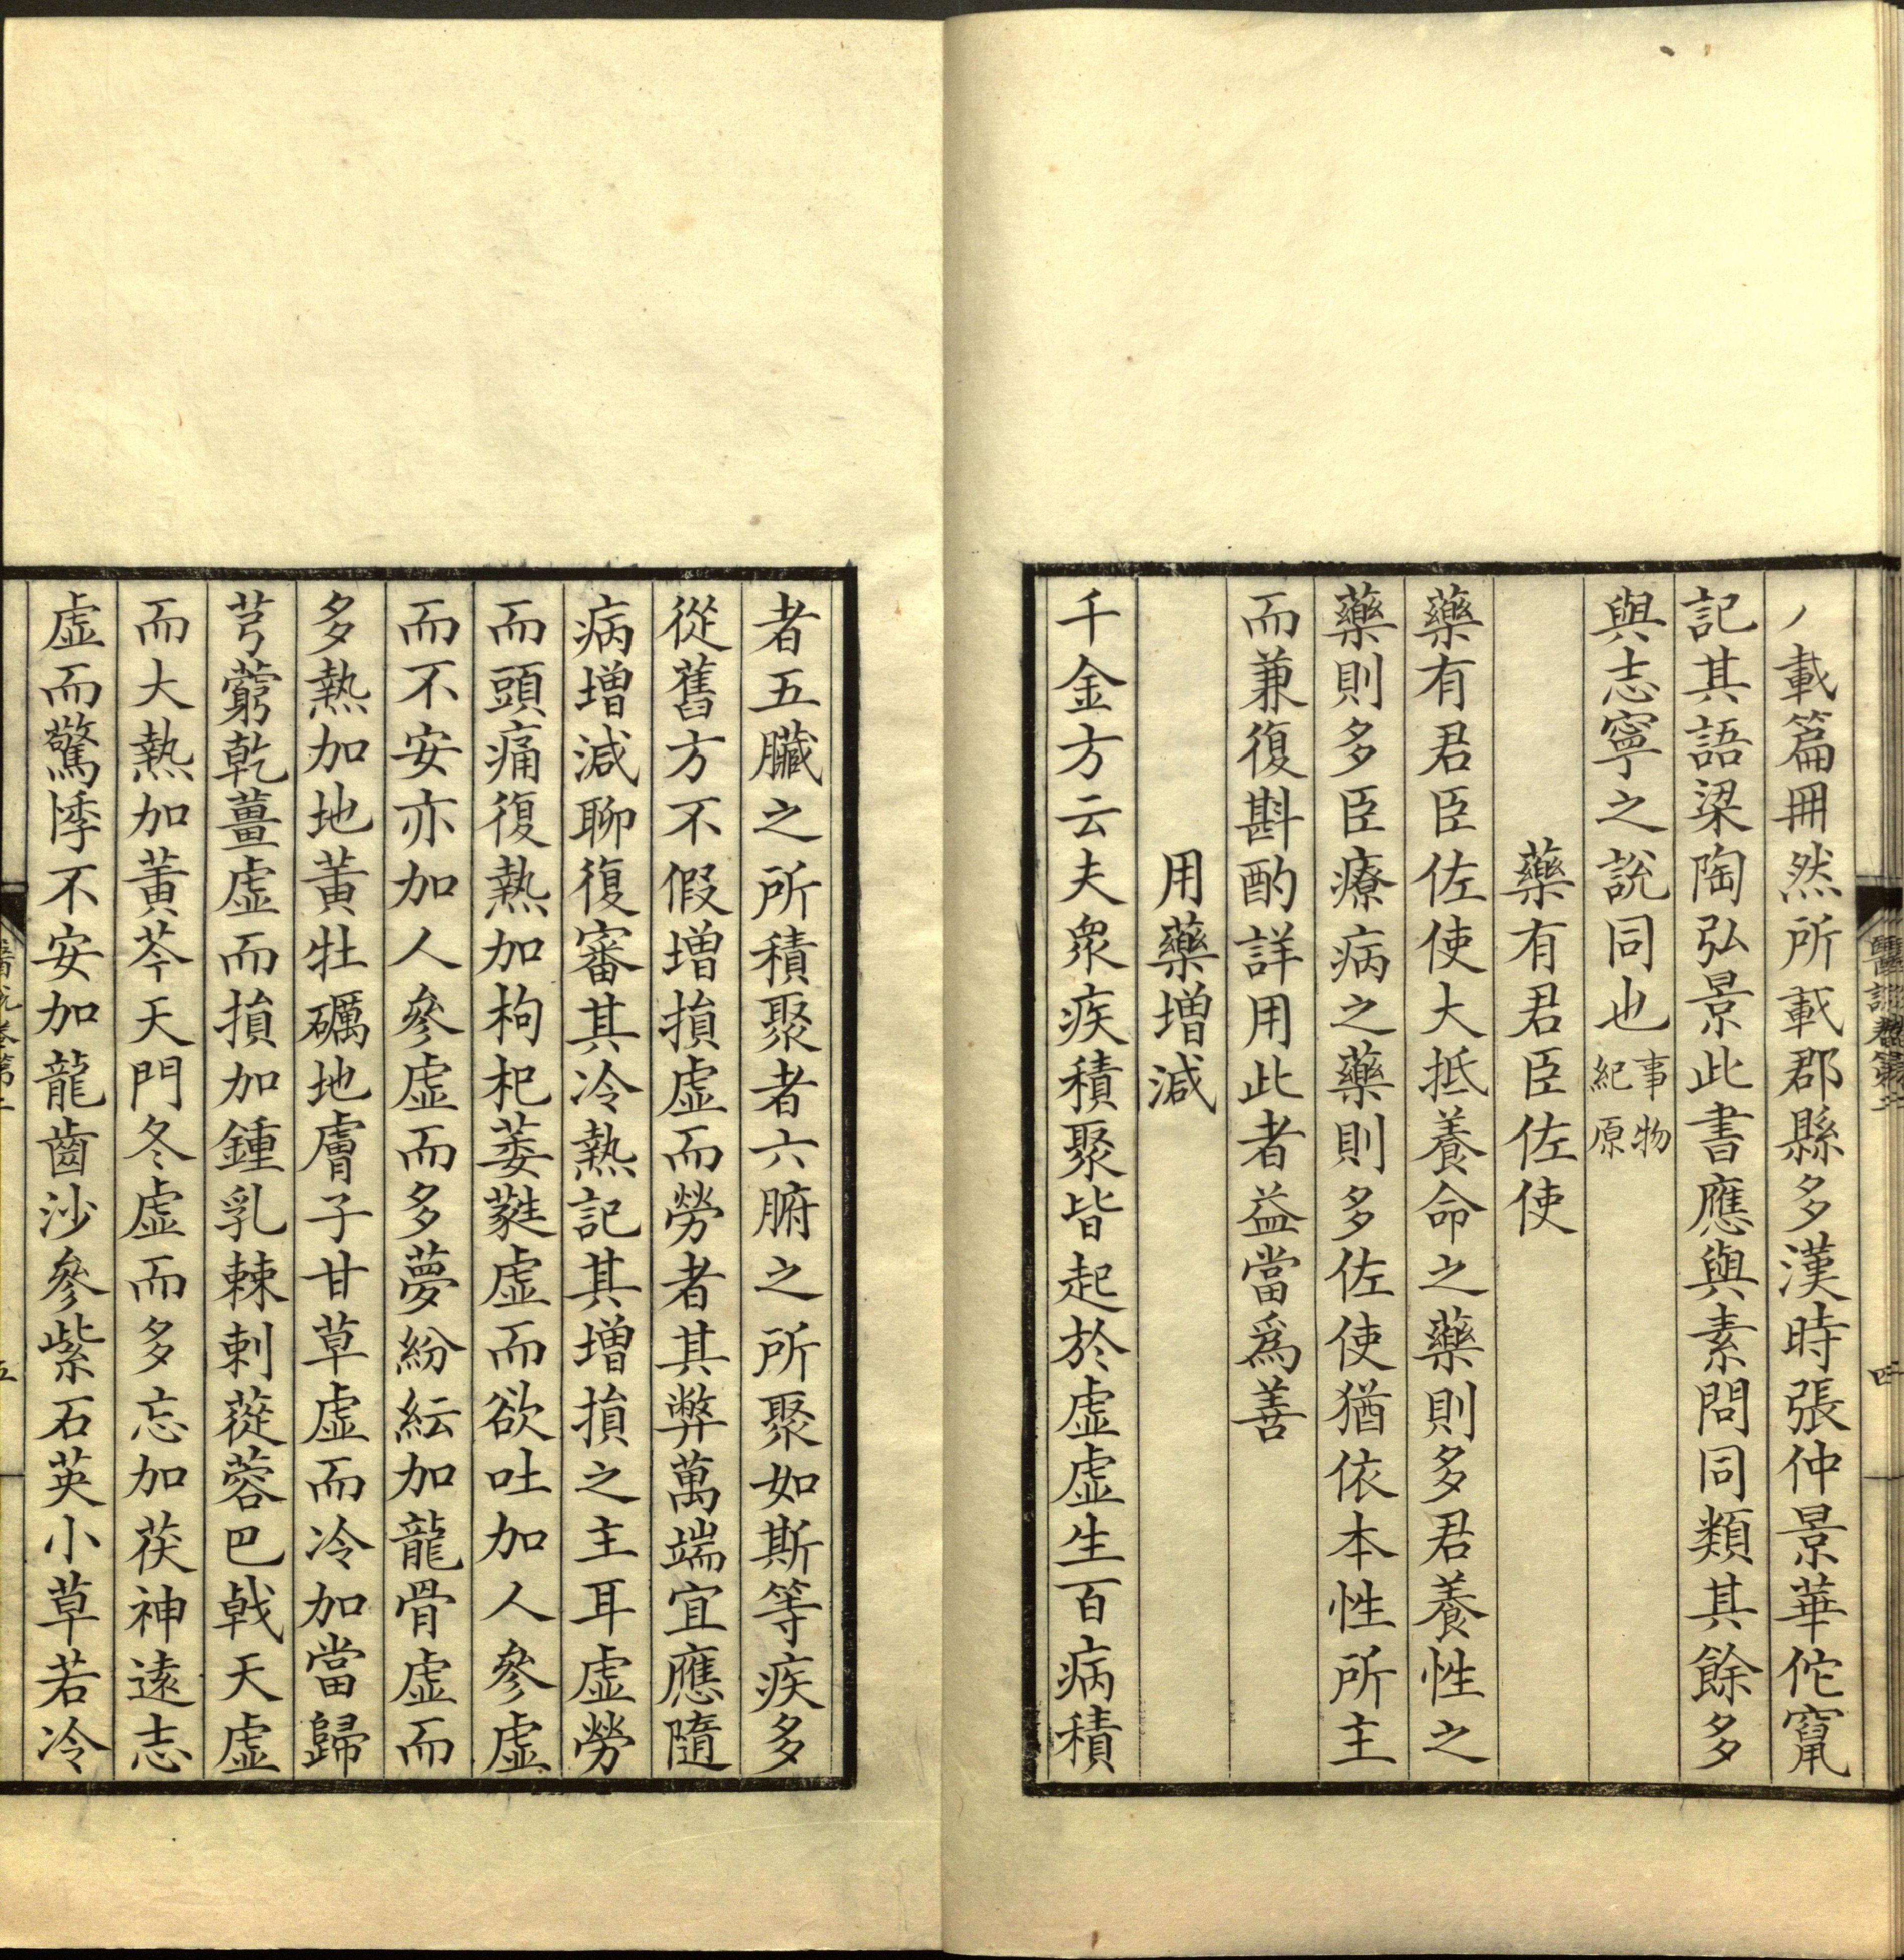 載篇冊然所載郡縣多漢時張仲景華佗竄
記其語梁陶弘景此書應與素問同類其餘多
與志寧之說同也事物紀原
藥有君臣佐使
藥有君臣佐使大抵養命之藥則多君養性之
藥則多臣療病之藥則多佐使猶依本性所主
而兼復斟酌詳用此者益當爲善
用藥増減
千金方云夫衆疾積聚皆起於虛虛生百病積
者五臟之所積聚者六腑之所聚如斯等疾多
從舊方不假増損虛而勞者其弊萬端宜應隨
病増減聊復審其冷熱記其増損之主耳虛勞
而頭痛復熱加枸杞萎蕤虛而欲吐加人參虛
而不安亦加人參虛而多夢紛紜加龍骨虛而
多熱加地黃牡礪地膚子甘草虛而冷加當歸
芎藭乾薑虛而損加鍾乳棘刺蓯蓉巴戟天虛
而大熱加黃芩天門冬虛而多忘加茯神遠志
虛而驚悸不安加龍齒沙參紫石英小草若冷